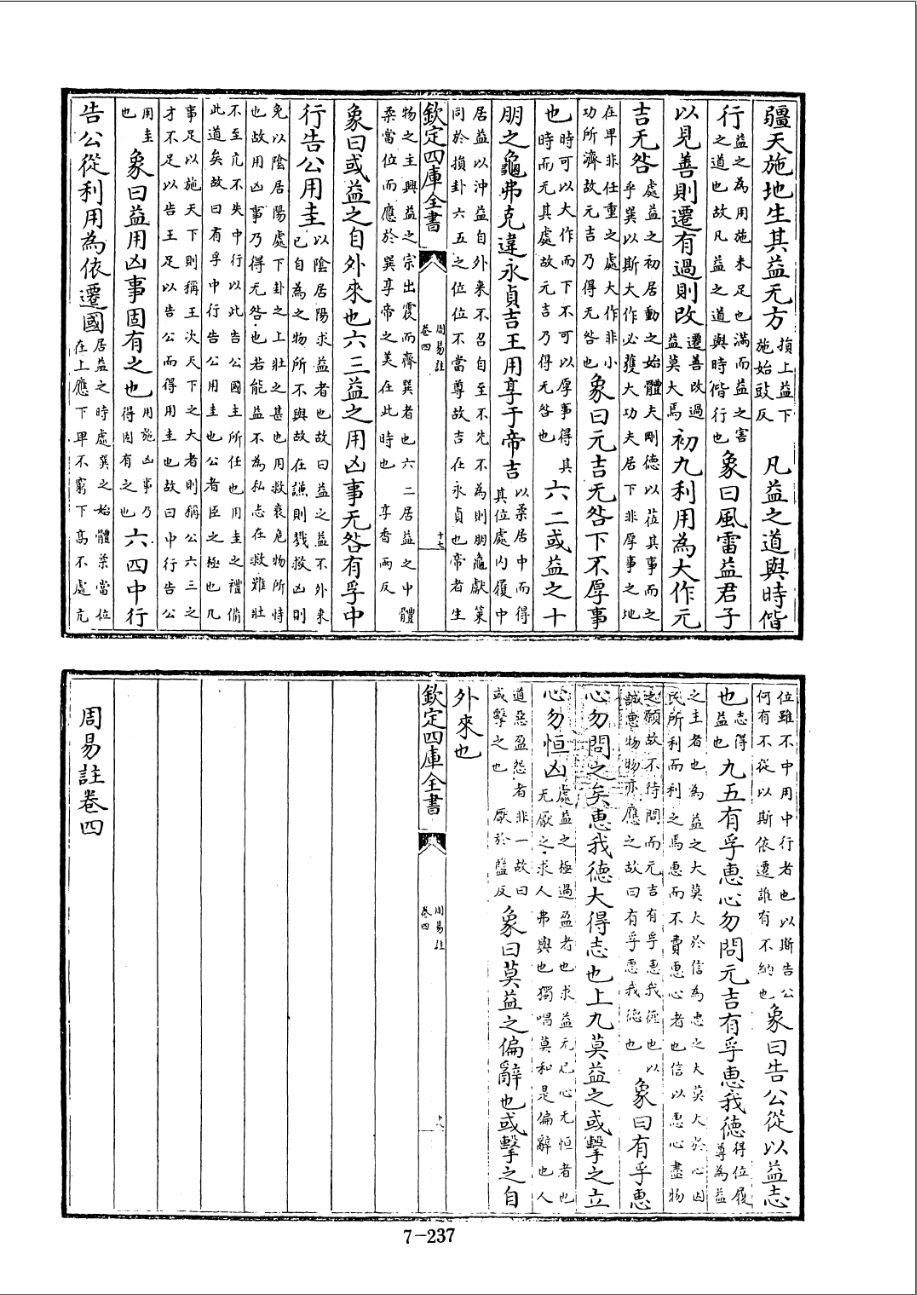 疆天施地生其益无方損上益下施始豉反凡益之道與時偕
行益之為用施未足也滿而益之害之道也故凡益之道與時偕行也象曰風雷益君子
以見善則遷有過則改遷善改過益莫大焉初九利用為大作元
吉无咎處益之初居動之始體夫剛德以莅其事而之乎巽以斯大作必獲大功夫居下非厚事之地
在卑非任重之處大作非小功所濟故元吉乃得无咎也象曰元吉无咎下不厚事
也時可以大作而下不可以厚事得其時而无其處故元吉乃得无咎也六二或益之十
朋之龜弗克違永貞吉王用享于帝吉以柔居中而得其位處內履中
居益以沖益自外來不召自至不先不為則朋龜獻策同於損卦六五之位位不當尊故吉在永貞也帝者生
欽定四庫全書 周易註 卷四 十七
物之主興益之宗出震而齊巽者也六二居益之中體柔當位而應於巽享帝之美在此時也 享香兩反
象曰或益之自外來也六三益之用凶事无咎有孚中
行告公用圭以陰居陽求益者也故曰益之益不外來己自為之物所不與故在謙則戮救凶則
免以陰居陽處下卦之上壯之甚也用救衰危物所恃也故用凶事乃得无咎也若能益不為私志在救難壯
不至亢不失中行以此告公國主所任也用圭之禮備此道矣故曰有孚中行告公用圭也公者臣之極也凡
事足以施天下則稱王次天下之大者則稱公六三之才不足以告王足以告公而得用圭也故曰中行告公
用圭也象曰益用凶事固有之也用施凶事乃得固有之也六四中行
告公從利用為依遷國居益之時處巽之始體柔當位在上應下卑不窮下高不處亢
位雖不中用中行者也以斯告公何有不從以斯依遷誰有不納也象曰告公從以益志
也志得益也九五有孚惠心勿問元吉有孚惠我德得位履尊為益
之主者也為益之大莫大於信為惠之大莫大於心因民所利而利之焉惠而不費惠心者也信以惠心盡物
之願故不待問而元吉有孚惠我德也以誠惠物物亦應之故曰有孚惠我德也象曰有孚惠
心勿問之矣惠我德大得志也上九莫益之或擊之立
心勿恒凶處益之極過盈者也求益无已心无恒者也无厭之求人弗與也獨唱莫和是偏辭也人
道惡盈怨者非一故曰或擊之也 厭於鹽反象曰莫益之偏辭也或擊之自
外來也
欽定四庫全書 周易註 卷四 十八
周易註卷四
7-237